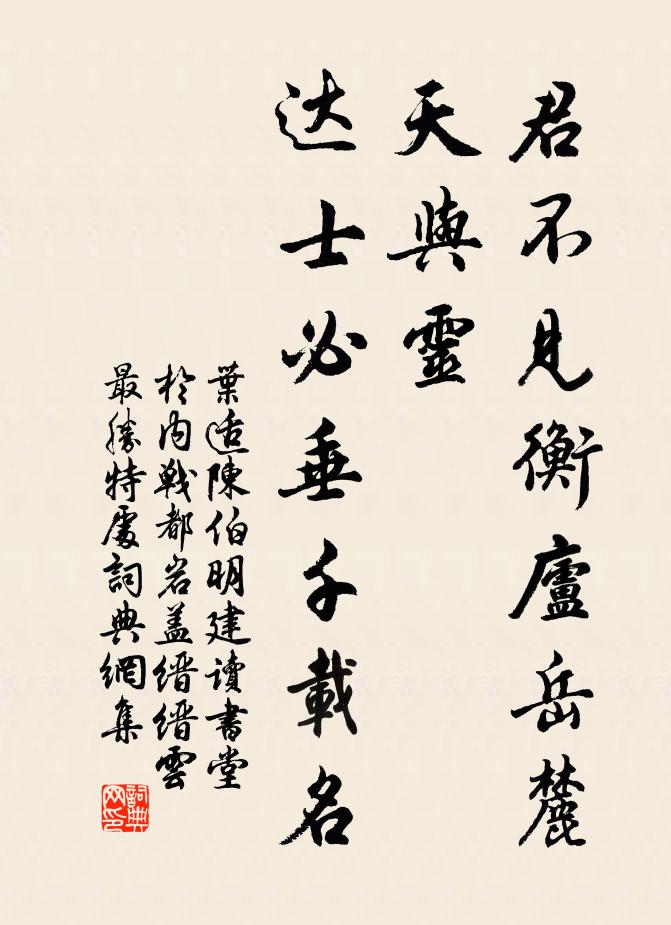 君不見衡廬岳麓
天與靈
达士必垂千載名
葉适陳伯明建讀書堂
於内戰都岩盖缙缙雲
最勝特處詞典網集
詞典网印